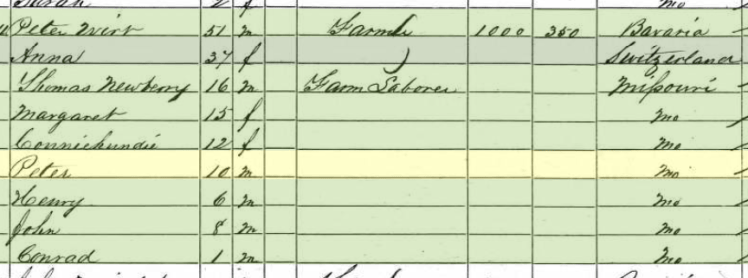 Peter Wirt 51 m Farmer 1000 350 Bavaria
Anna 37 f Switzerland
Thomas Newberry 16 m Farm Laborer Missouri
Margaret 15 f Mo
Conniehundie 12 f Mo
Peter 10 m Mo
Henry 6 m Mo
John 8 m Mo
Conrad 1 m Mo